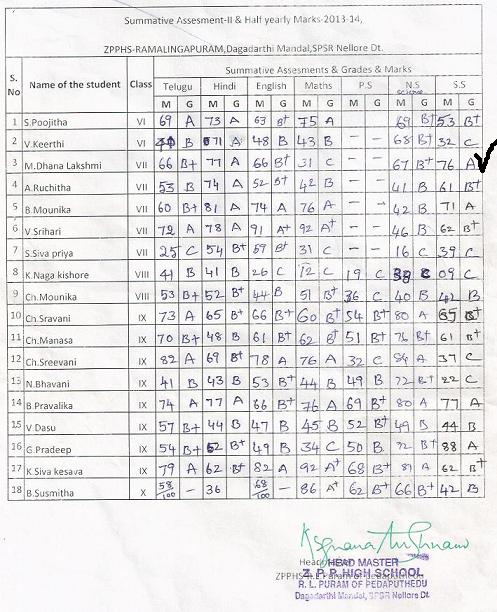 Summative Assesment-II & Half yearly Marks-2013-14,
ZPPHS-RAMALINGAPURAM,Dagadarthi Mandal,SPSR Nellore Dt.
S. No Name of the student Class Summative Assesments & Grades & Marks
Telugu Hindi English Maths P.S N.S science S.S
M G M G M G M G M G M G M G
1 S.Poojitha VI 69 A 73 A 63 B+ 75 A 69 B+ 53 B+
2 V.Keerthi VI B 71 A 48 B 43 B - - 68 B+ 32 C
3 M.Dhana Lakshmi VII 66 B+ 77 A 66 B+ 31 C - - 67 B+ 76 A
4 A.Ruchitha VII 53 B 74 A 52 B+ 42 B - - 41 B 61 B+
5 B.Mounika VII 60 B+ 81 A 74 A 76 A - - 42 B 71 A
6 V.Srihari VII 72 A 78 A 91 A+ 92 A+ - - 46 B 62 B+
7 S.Siva priya VII 25 C 54 B+ 59 B+ 31 C 16 C 39 C
8 K.Naga kishore VIII 41 B 41 B 26 C 12 C 19 C 38 C 09 C
9 Ch.Mounika VIII 53 B+ 52 B+ 44 B 51 B+ 36 C 40 B 42 B
10 Ch.Sravani IX 73 A 65 B+ 66 B+ 60 B+ 54 B+ 80 A 65 B+
11 Ch.Manasa IX 70 B+ 48 B 61 B+ 62 B+ 51 B+ 76 B+ 61 B+
12 Ch.Sreevani IX 82 A 69 B+ 78 A 76 A 32 C 84 A 37 C
13 N.Bhavani IX 41 B 43 B 53 B+ 44 B 49 B 72 B+ 22 C
14 B.Pravalika IX 74 A 77 A 66 B+ 76 A 69 B+ 80 A 77 A
15 V.Dasu IX 57 B+ 44 B 47 B 45 B 52 B+ 49 B 44 B
16 G.Pradeep IX 54 B+ 62 B+ 49 B 34 C 50 B 72 B+ 88 A
17 K.Siva kesava IX 79 A 62 B+ 82 A 92 A+ 68 B+ 81 A 62 B+
18 B.Susmitha X 58/100 - 36 68/100 - 86 A+ 62 B+ 66 B+ 42 B
HEAD MASTER
Z. P. P. HIGH SCHOOL
R. L. PURAM OF PEDAPUTHEDU
Dagadarthi Mandal, SPSR Nellore Dt.